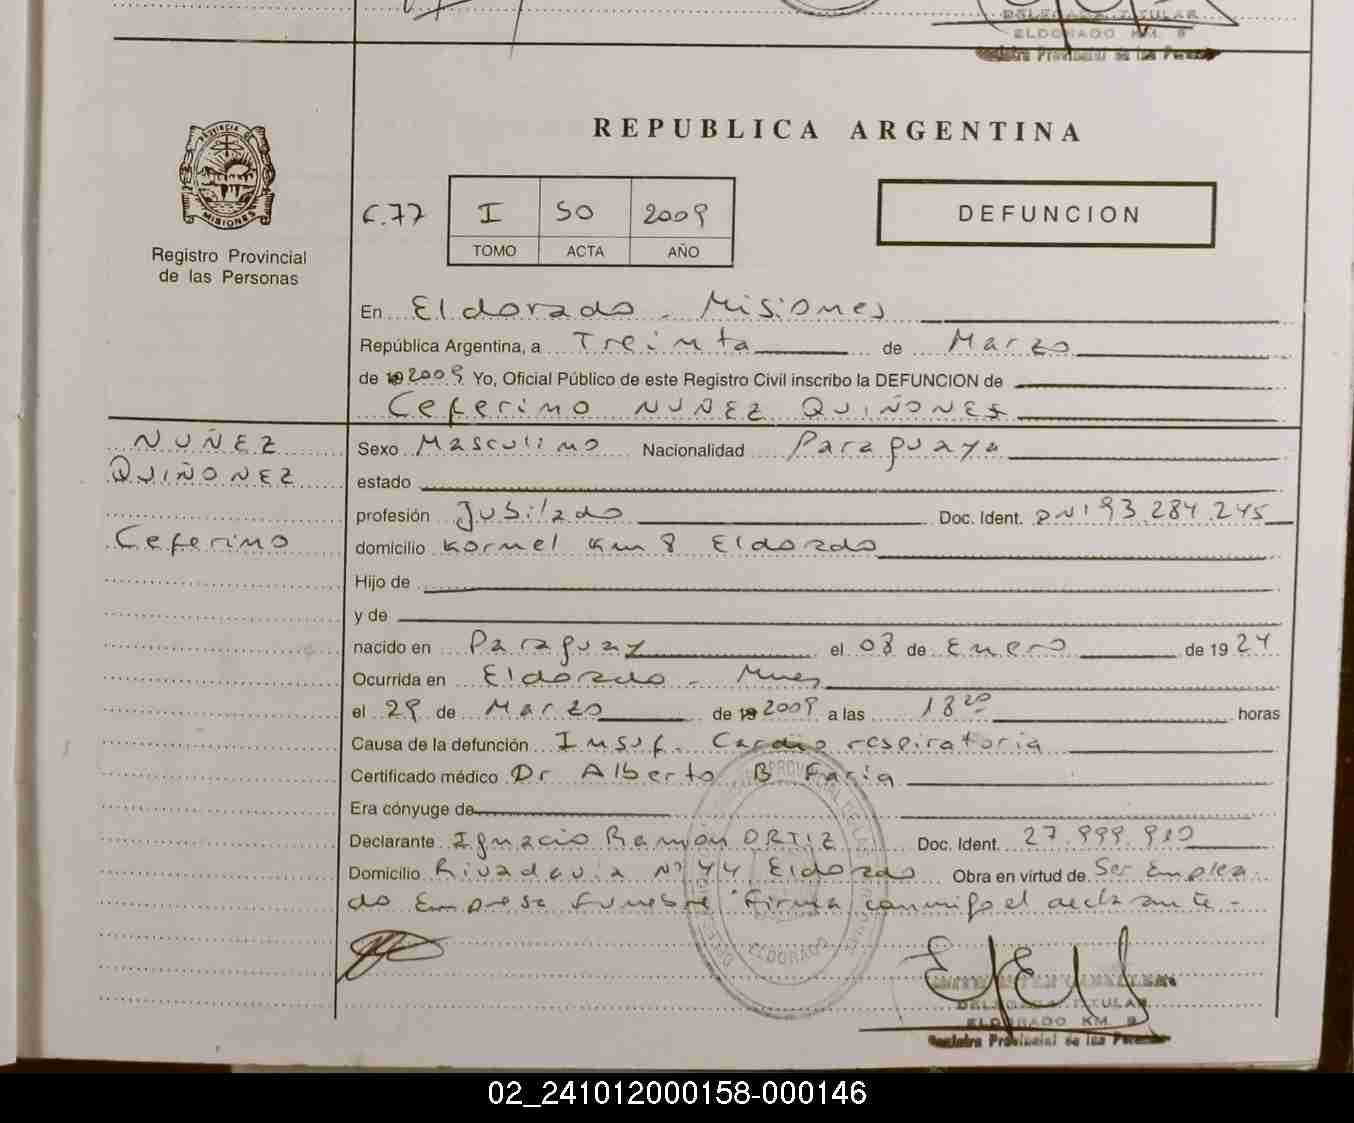 DELEGADA TITULAR
ELDORADO KM. 8
Registro Provincial de las Personas
REPUBLICA ARGENTINA
PROVINCIA DE
MISIONES
Registro Provincial
de las Personas
C.77
I 50 2009
TOMO ACTA AÑO
DEFUNCION
En Eldorado - Misiones
República Argentina, a Treinta de Marzo
de 2009 Yo, Oficial Público de este Registro Civil inscribo la DEFUNCION de
Ceferino NUÑEZ QUIÑONEZ
NUÑEZ
QUIÑONEZ
Ceferino
Sexo Masculino Nacionalidad Paraguaya
estado
profesión Jubilado Doc. Ident. DNI 93.284.245
domicilio Kornel Km 8 Eldorado
Hijo de
y de
nacido en Paraguay el 08 de Enero de 1924
Ocurrida en Eldorado - Mnes
el 29 de Marzo de 2009 a las 18 20 horas
Causa de la defunción Insuf. Cardio respiratoria
Certificado médico Dr Alberto B Faria
Era cónyuge de
Declarante Ignacio Ramón ORTIZ Doc. Ident. 27.999.910
Domicilio Rivadavia Nº 44 Eldorado Obra en virtud de Ser Emplea
do Empresa Funebre Firma conmigo el declarante -
ELDORADO
DELEGADA TITULAR
ELDORADO KM. 8
Registro Provincial de las Personas
02_241012000158-000146